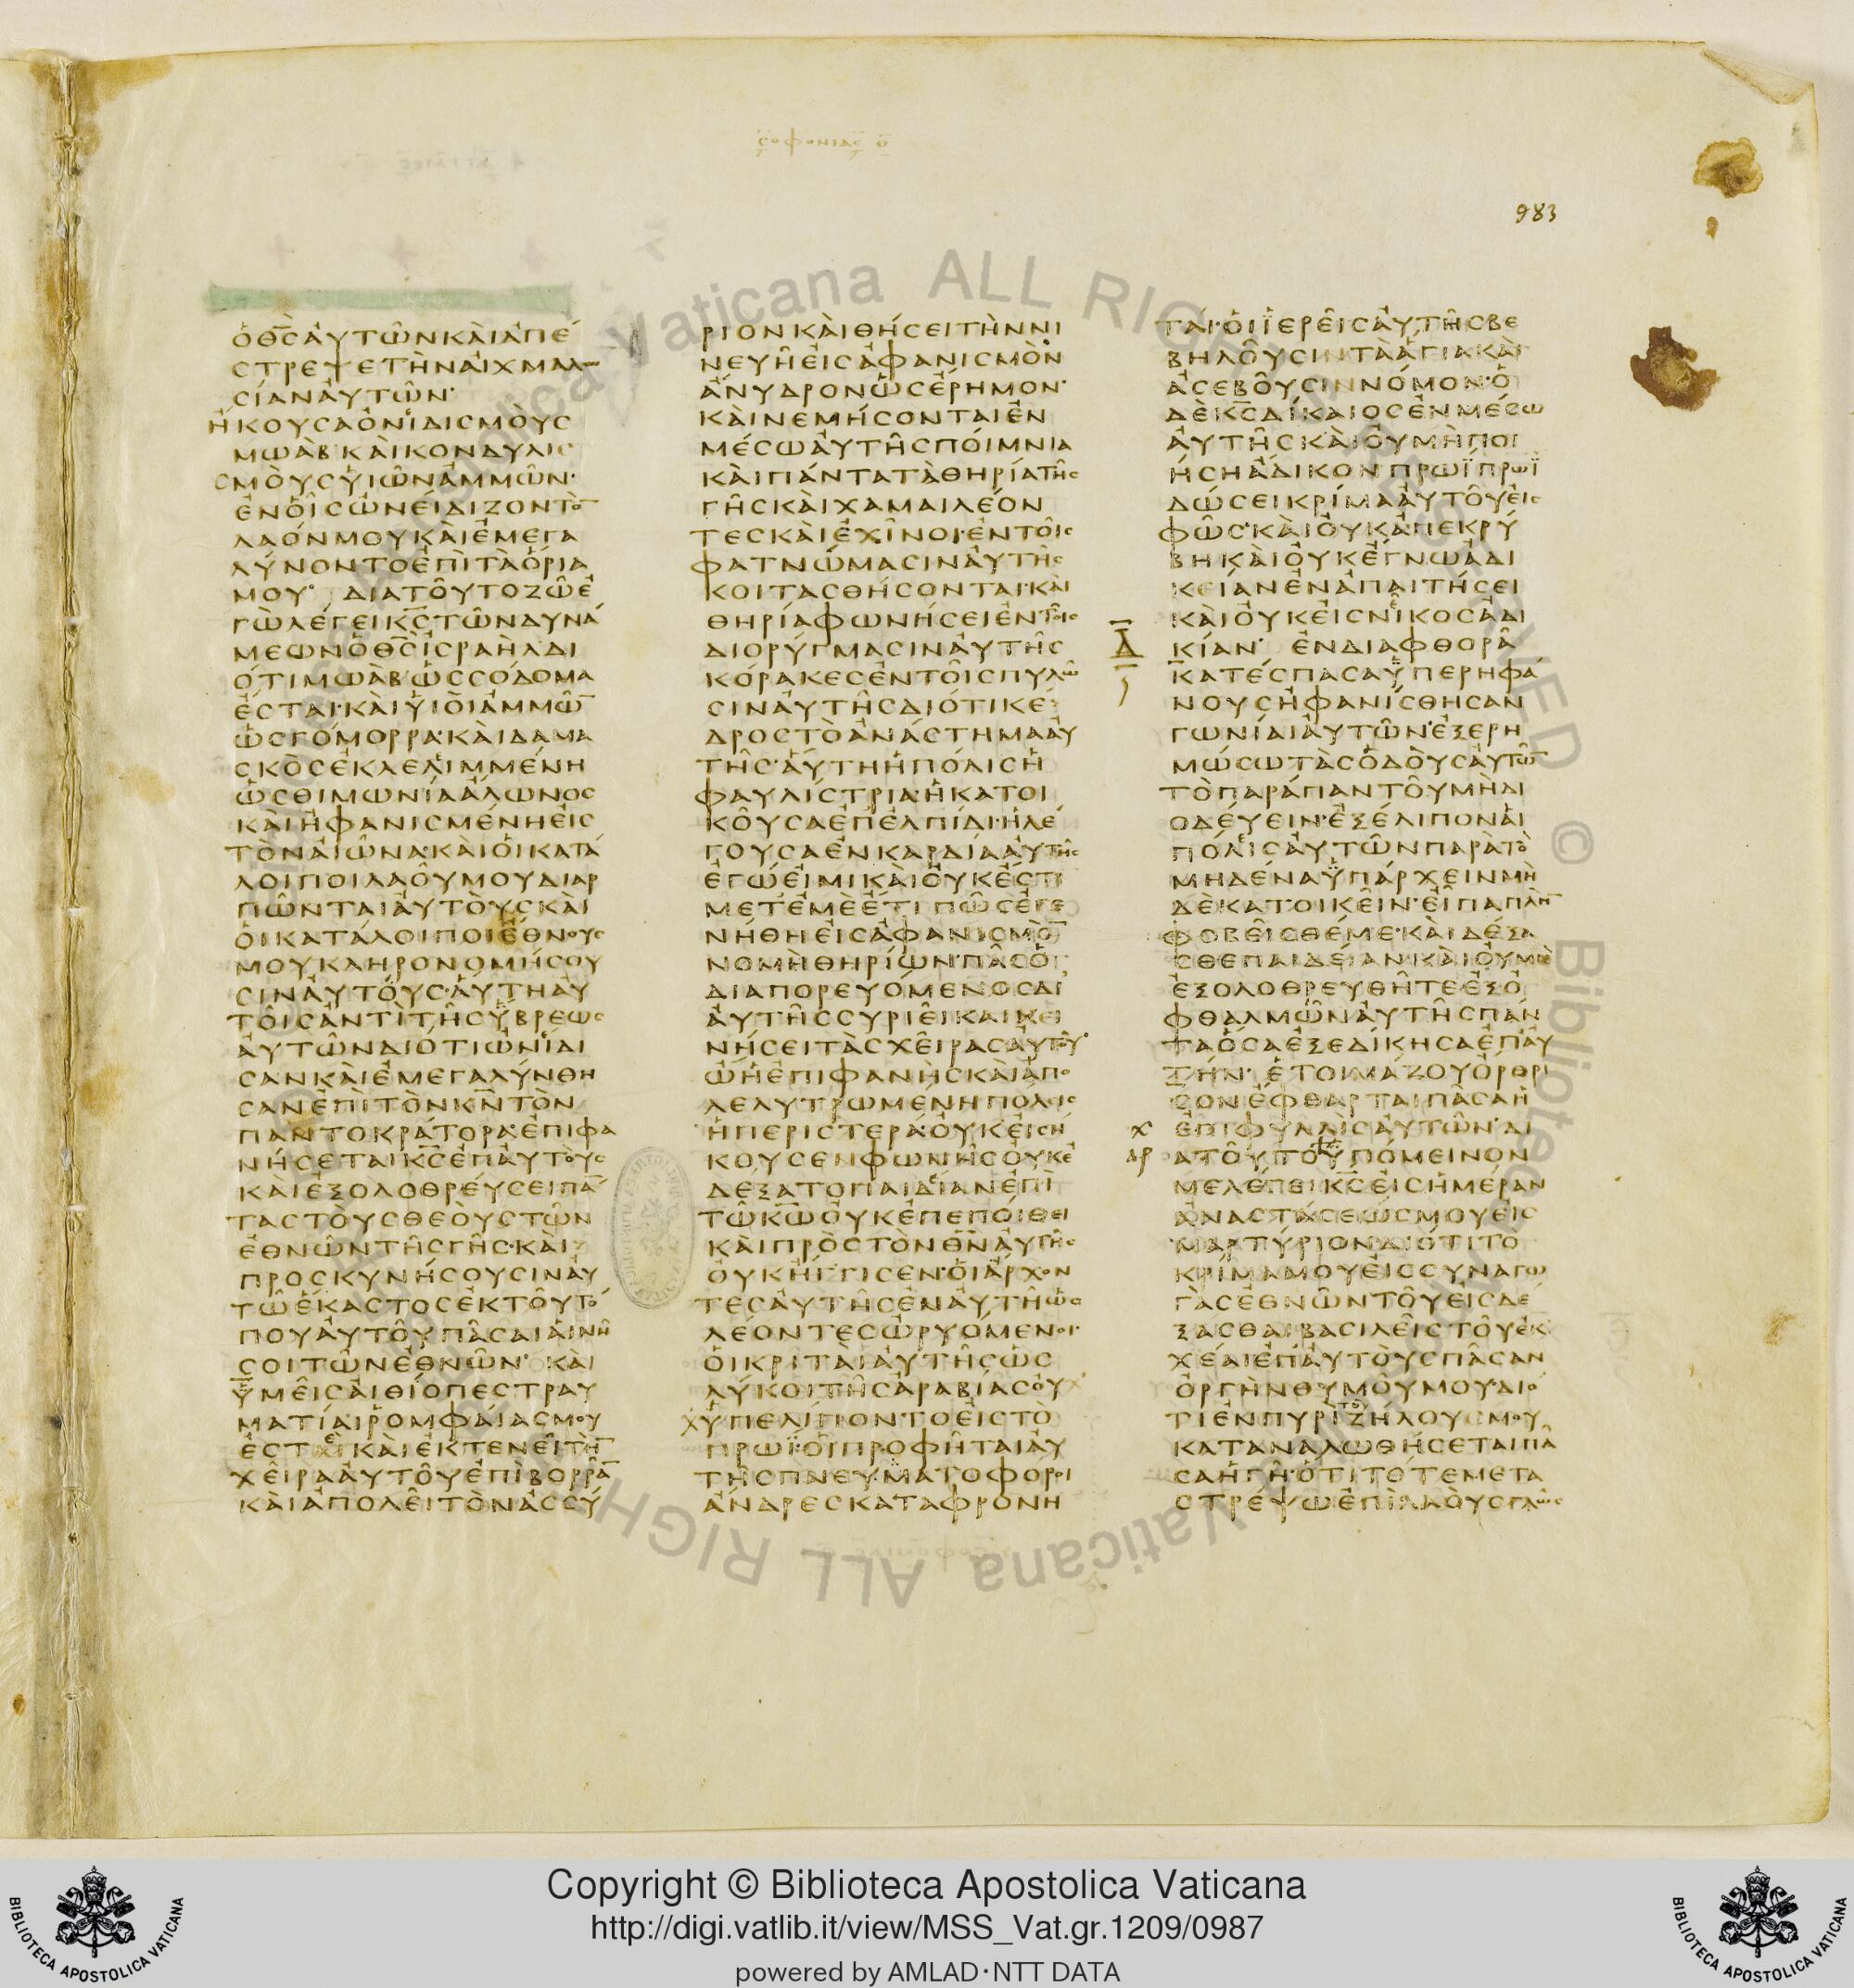 σοφονιας θ
983
ὁθ̅ς̅ἀυτῶνκὰιἀπέ
στρεψετὴνἀιχμαλω
σίανἀυτῶν·
ἤκουσαὀνϊδισμὸυς
μωὰβ·κὰικονδυλισ
μὸυςϋἱῶνἀμμῶν·
ἐνὁῖςὠνείδιζοντὸ̅
λαόνμουκὰιἐμεγα
λύνοντοἐπὶτὰὅρια
μου· διατοῦτοζῶἐ
γὼλέγεικ̅ς̅τῶνδυνά
μεωνὁθ̅ς̅ἰσραὴλδι
ότιμωὰβ·ὡςσόδομα
ἔσται·κὰιϋἱὸιἀμμῶ̅
ὡςγόμορρα·κὰιδαμα
σκὸςἐκλελιμμένη
ὡςθιμωνίαἅλωνος
κὰιἠφανισμένηἐις
τὸνἀιῶνα·κὰιὁικατά
λοιποιλαοῦμουδιαρ
πῶνταιἀυτὸυςκὰι
ὁικατάλοιποιἔθνους
μουκληρονομήσου
σινἀυτόυς·ἅυτηἀυ
τοῖςἀντὶτῆςὕβρεως
ἀυτῶνδιότιὠνίδι
σανκὰιἐμεγαλύνθη
σανἐπὶτὸνκ̅ν̅τὸν
παντοκράτορα·ἐπιφα
νήσεταικ̅ς̅ἐπἀυτόυς
κὰιἐξολοθρέυσειπά̅
ταςτὸυςθεὸυςτῶν
ἐθνῶντῆςγῆς·κὰι
προσκυνήσουσινἀυ
τῶἕκαστοςἐκτοῦτό
πουἀυτοῦπᾶσαιἁινῆ
σοιτῶνἐθνῶν· κὰι
ὑμεῖςἀιθίοπεςτραυ
ματίαιῥομφάιασμου
ἐστὲ·κὰιἐκτενεῖτὴ̅
χεῖραἀυτοῦἐπὶβορρᾶ̅
κὰιἀπολεῖτὸνἀσσύ
ριονκὰιθήσειτὴννι
νευῆἐιςἀφανισμὸν
ἄνυδρονὡςἔρημον·
κὰινεμήσονταιἐν
μέσωἀυτῆςπόιμνια
κὰιπάνταταὰθηρίατῆς
γῆςκὰιχαμαιλέον
τεςκὰιἐχῖνοι·ἐντοῖς
φατνώμασινἀυτῆς
κοιτασθήσονται·κὰι
θηρίαφωνήσειἐντοῖς
διορύγμασινἀυτῆς
κόρακεςἐντοῖςπυλῶ
σινἀυτῆςδιότικέ
δροςτὸἀνάστημαἀυ
τῆς·ἅυτηἡπόλιςἡ
φαυλίστρια·ἡκατοι
κοῦσαἐπἐλπίδι·ἡλέ
γουσαἐνκαρδίαἀυτῆς
ἐγώἐιμικὰιὀυκἔστι
μετ’ἐμὲἔτιπῶςἐγε
νήθηἐιςἀφανισμὸ̅
νομὴθηρίων·πᾶςὁ
διαπορευόμενοςδι
ἀυτῆςσυριεῖκαικει
νήσειτὰςχεῖραςἀυτοῦ·
ὠἡἐπιφανὴςκὰιἀπο
λελυτρωμένηπόλις
ἡπεριστερά·ὀυκἐισή
κουσενφωνῆςὀυκἐ
δέξατοπαιδείανἐπὶ
τῶκ̅ω̅ὀυκἐπεπόιθει
κὰιπρὸςτὸνθ̅ν̅ἀυτῆς
ὀυκἤγγισεν·ὁιἄρχον
τεςἀυτῆςἐνἀυτῆὡς
λέοντεςὠρυόμενοι·
ὁικριτὰιἀυτῆςὡς
λύκοιτῆςἀραβίαςὀυχ
ὑπελίποντοἐιςτὸ
πρωΐ·ὁιπροφῆταιἀυ
τῆςπνευματοφόροι
ἄνδρεςκαταφρονη
ταί·ὁιἱερεῖςἀυτῆςβε
βηλοῦσιντὰἅγιακὰι
ἀσεβοῦσιννόμον·ὁ
δὲκ̅ς̅δίκαιοςἐνμέσω
ἀυτῆςκὰιὀυμὴποι
ήσηἄδικονπρωῒπρωῒ
δώσεικρίμαἀυτοῦἐις
φῶς·κὰιὀυκἀπεκρύ
βηκὰιὀυκἔγνωἀδι
κείανἐνἀπαιτήσει
κὰιὀυκἐιςνῖκοςἀδι
κίαν· ἐνδιαφθορᾶ
Δ̅
κατέσπασαϋπερηφά
νουςἠφανίσθησαν
γωνίαιἀυτῶν·ἐξερη
μώσωτὰςὁδὸυςἀυτῶ̅
τὸπαράπαντοῦμὴδι
οδέυειν·ἐξέλιπονἁι
πόλιςἀυτῶνπαρὰτὸ
μηδέναὑπάρχεινμὴ
δὲκατοικεῖν·ἐῖπαπλὴ̅
φοβεῖσθέμε·κὰιδέξα
σθεπαιδείανκὰιὀυμὴ
ἐξολοθρευθῆτεἐξὀ
φθαλμῶνἀυτῆςπάν
ταὅσαἐξεδίκησαἐπἀυ
τήν· ἑτοιμάζουὄρθρι
σονἔφθαρταιπᾶσαἡ
ἐπιφυλλὶςἀυτῶν·δι
ατοῦτοὑπόμεινον
μελέγεικ̅ς̅ἐιςἡμέραν
ἀναστάσεώςμουἐις
μαρτύριονδιότιτὸ
κρίμαμουἐιςσυναγω
γὰςἐθνῶντοῦἐισδέ
ξασθαιβασιλεῖςτοῦἐκ
χέαιἐπἀυτὸυςπᾶσαν
ὀργὴνθυμοῦμου·διό
τιἐνπυρὶζήλουςμου
καταναλωθήσεταιπᾶ
σαἡγῆ·ὅτιτότεμετα
στρέψωἐπὶλαὸυςγλῶς
Copyright © Biblioteca Apostolica Vaticana
http://digi.vatlib.it/view/MSS_Vat.gr.1209/0987
powered by AMLAD·NTT DATA
BIBLIOTECA APOSTOLICA VATICANA
BIBLIOTECA APOSTOLICA VATICANA